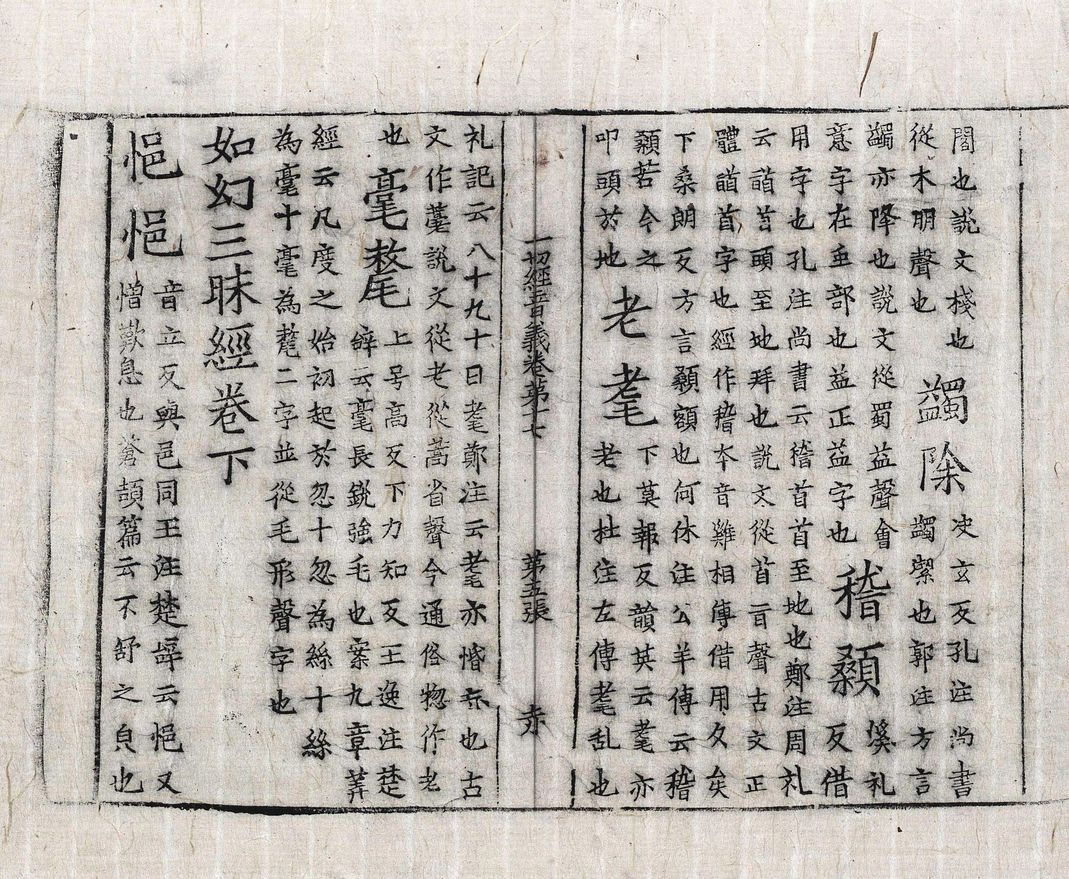 閣也說文棧也
從木朋聲也
蠲除
決玄反孔注尚書
蠲潔也郭注方言
蠲亦降也說文從蜀益聲會
意字在垂部也益正益字也
稽顙
溪礼
反借
用字也孔注尚書云稽首首至地也鄭注周礼
云䭫首頭至地拜也說文從首旨聲古文正
體䭫首字也經作稽夲音雞相傳借用久矣
下桑朗反方言顙額也何休注公羊傳云稽
顙若今之
叩頭於地
老耄
下莫報反韻英云耄亦
老也杜注左傳耄乱也
一切經音義卷第十七
第五張
赤
礼記云八十九十曰耄鄭注云耄亦惛忘也古
文作薹說文從老從蒿省聲今通俗惣作老
也
毫氂
上号高反下力知反王逸注楚
辞云毫長銳強毛也案九章筭
經云凡度之始初起於忽十忽為絲十絲
為毫十毫為氂二字並從毛形聲字也
如幻三昧經卷下
悒悒
音立反與邑同王注楚辞云悒又
憎歎息也蒼頡篇云不舒之皃也